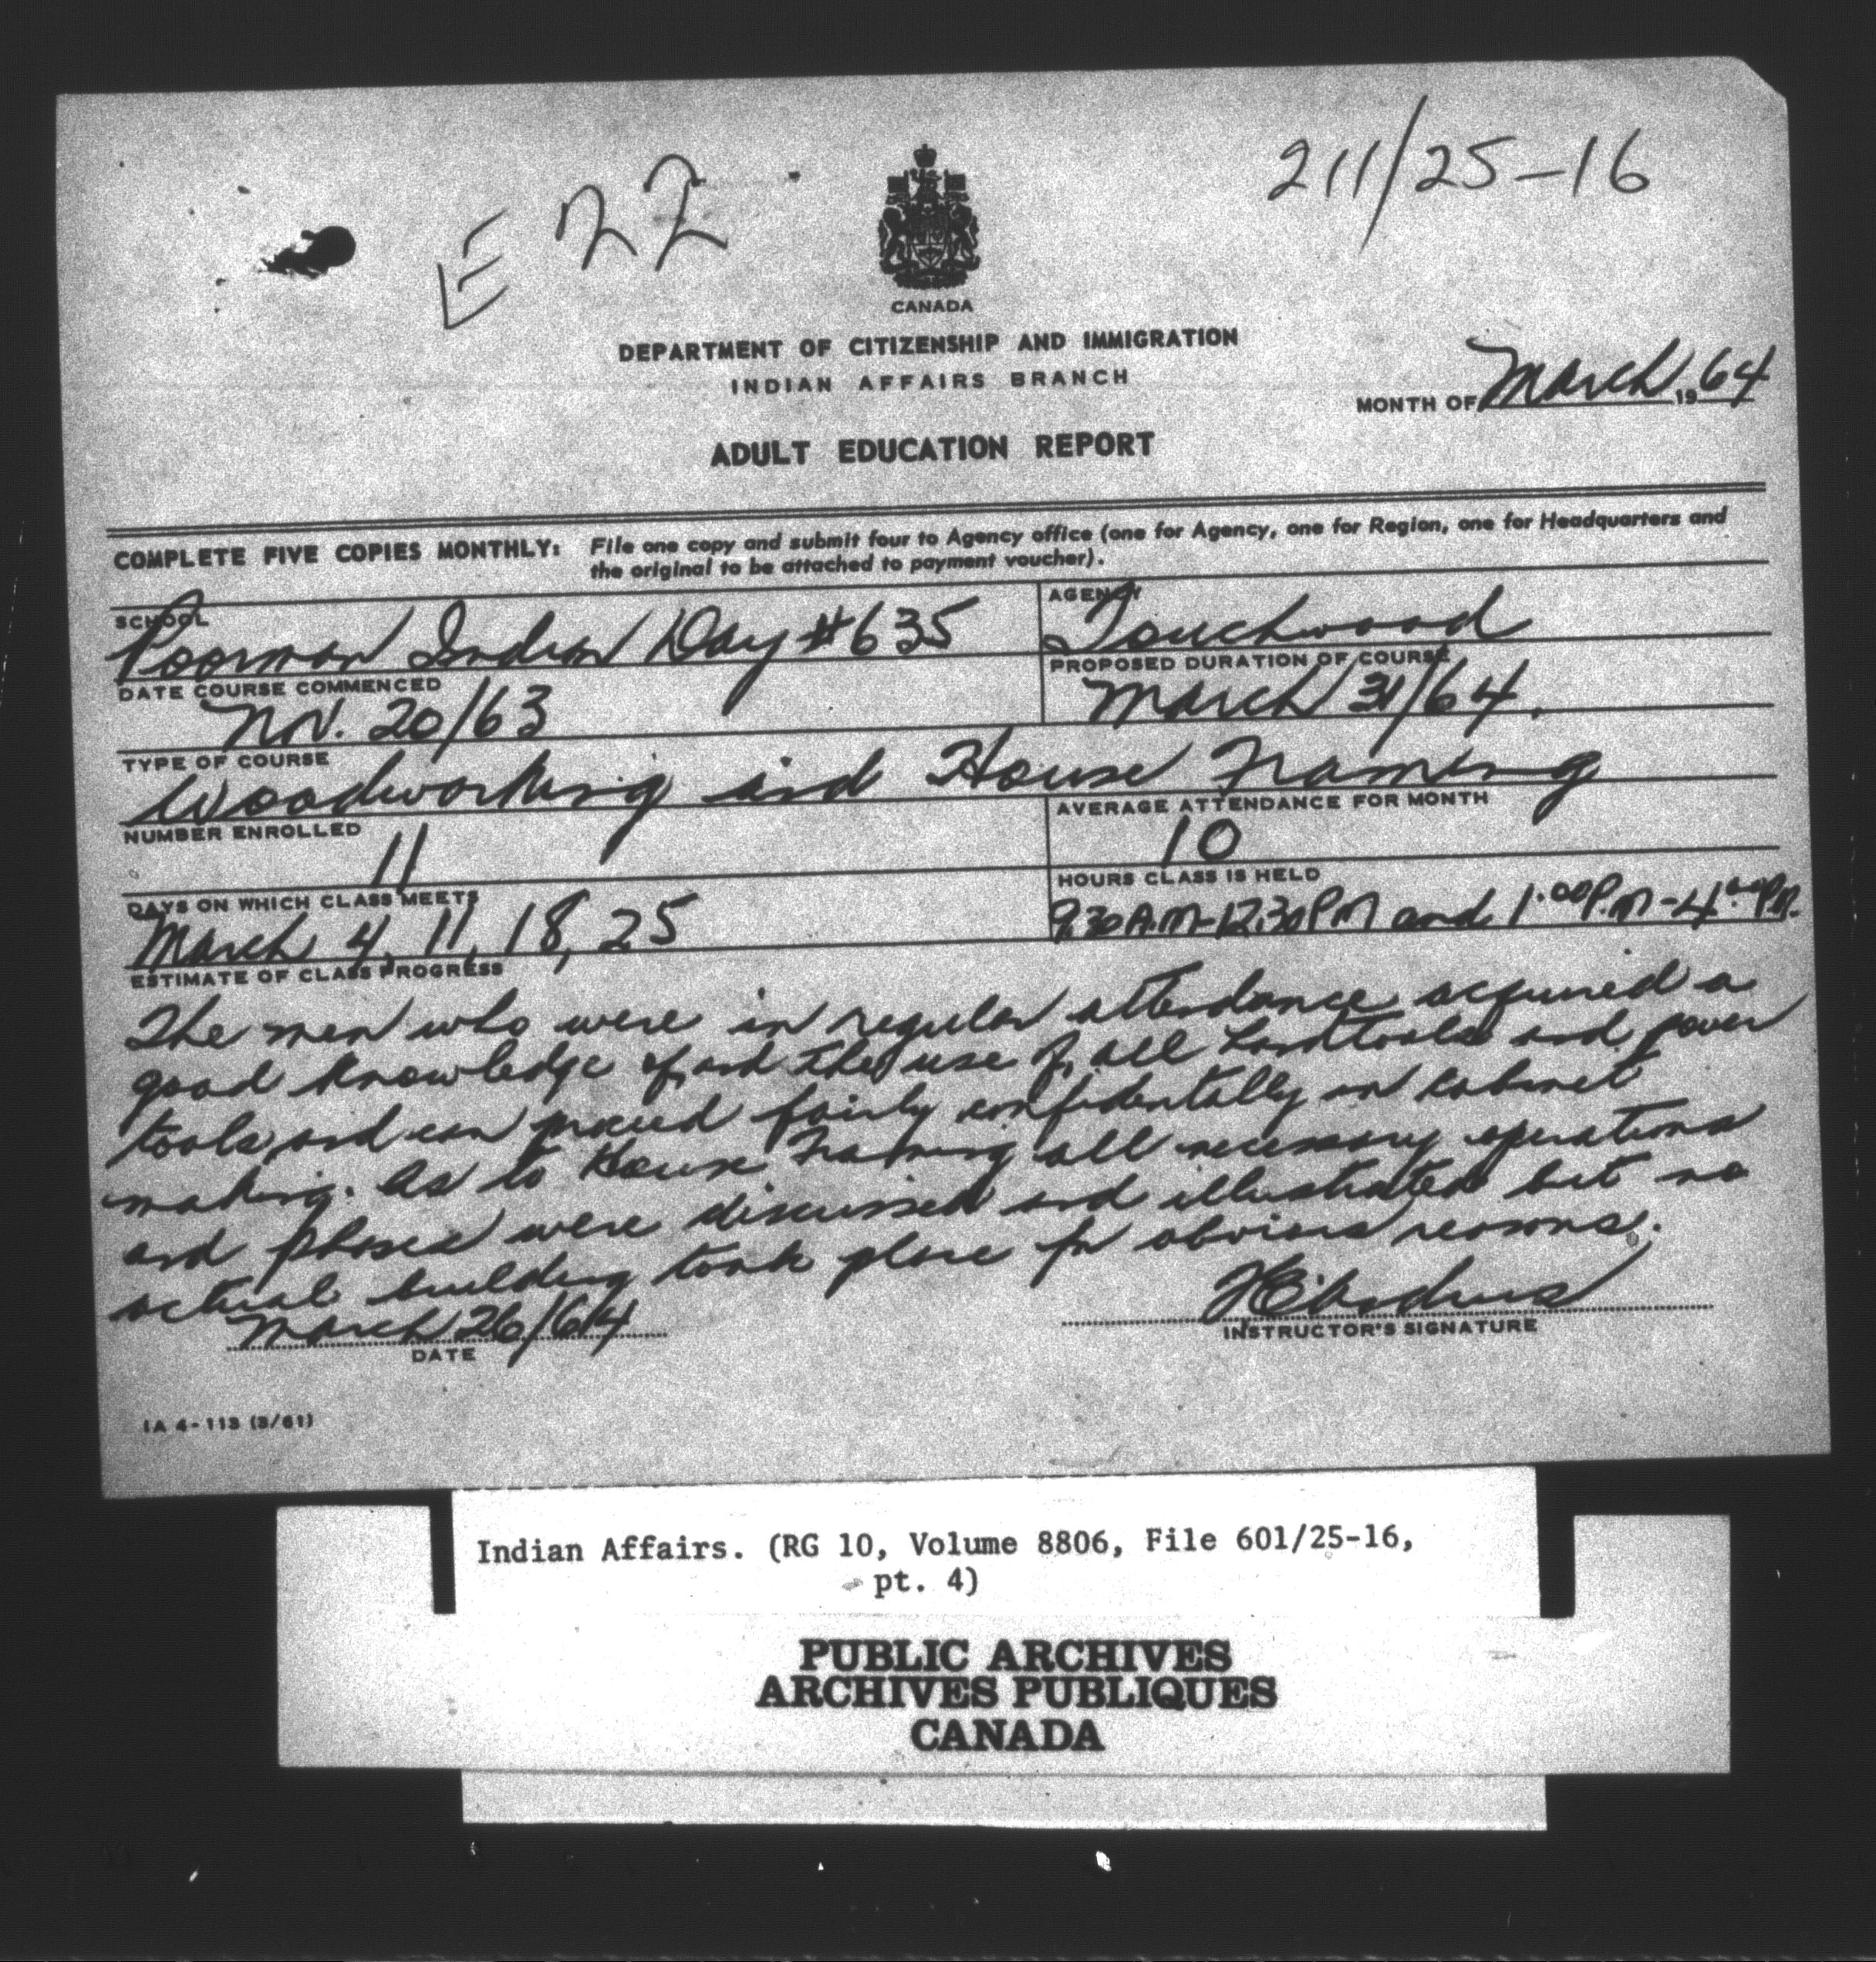 E 22
211/25-16
CANADA
DEPARTMENT OF CITIZENSHIP AND IMMIGRATION
INDIAN AFFAIRS BRANCH
MONTH OF March 1964
ADULT EDUCATION REPORT
COMPLETE FIVE COPIES MONTHLY: File one copy and submit four to Agency office (one for Agency, one for Region, one for Headquarters and
the original to be attached to payment voucher).
SCHOOL
Poorman Indian Day #635
AGENCY
Touchwood
DATE COURSE COMMENCED
Nov. 20/63
PROPOSED DURATION OF COURSE
March 31/64.
TYPE OF COURSE
Woodworking and House Framing
NUMBER ENROLLED
11
AVERAGE ATTENDANCE FOR MONTH
10
DAYS ON WHICH CLASS MEETS
March 4, 11, 18, 25
HOURS CLASS IS HELD
9.30 A.M-12.30 PM and 1.00 P.M-4.00 P.M.
ESTIMATE OF CLASS PROGRESS
The men who were in regular attendance acquired a
good knowledge of, and the use of, all handtools and power
tools, and can proceed fairly confidentally in cabinet
making. As to House Framing all necessary operations
and phases were discussed and illustrated but no
actual building took place for obvious reasons.
March 26/64
DATE
INSTRUCTOR'S SIGNATURE
IA 4-113 (3/61)
Indian Affairs. (RG 10, Volume 8806, File 601/25-16,
pt. 4)
PUBLIC ARCHIVES
ARCHIVES PUBLIQUES
CANADA